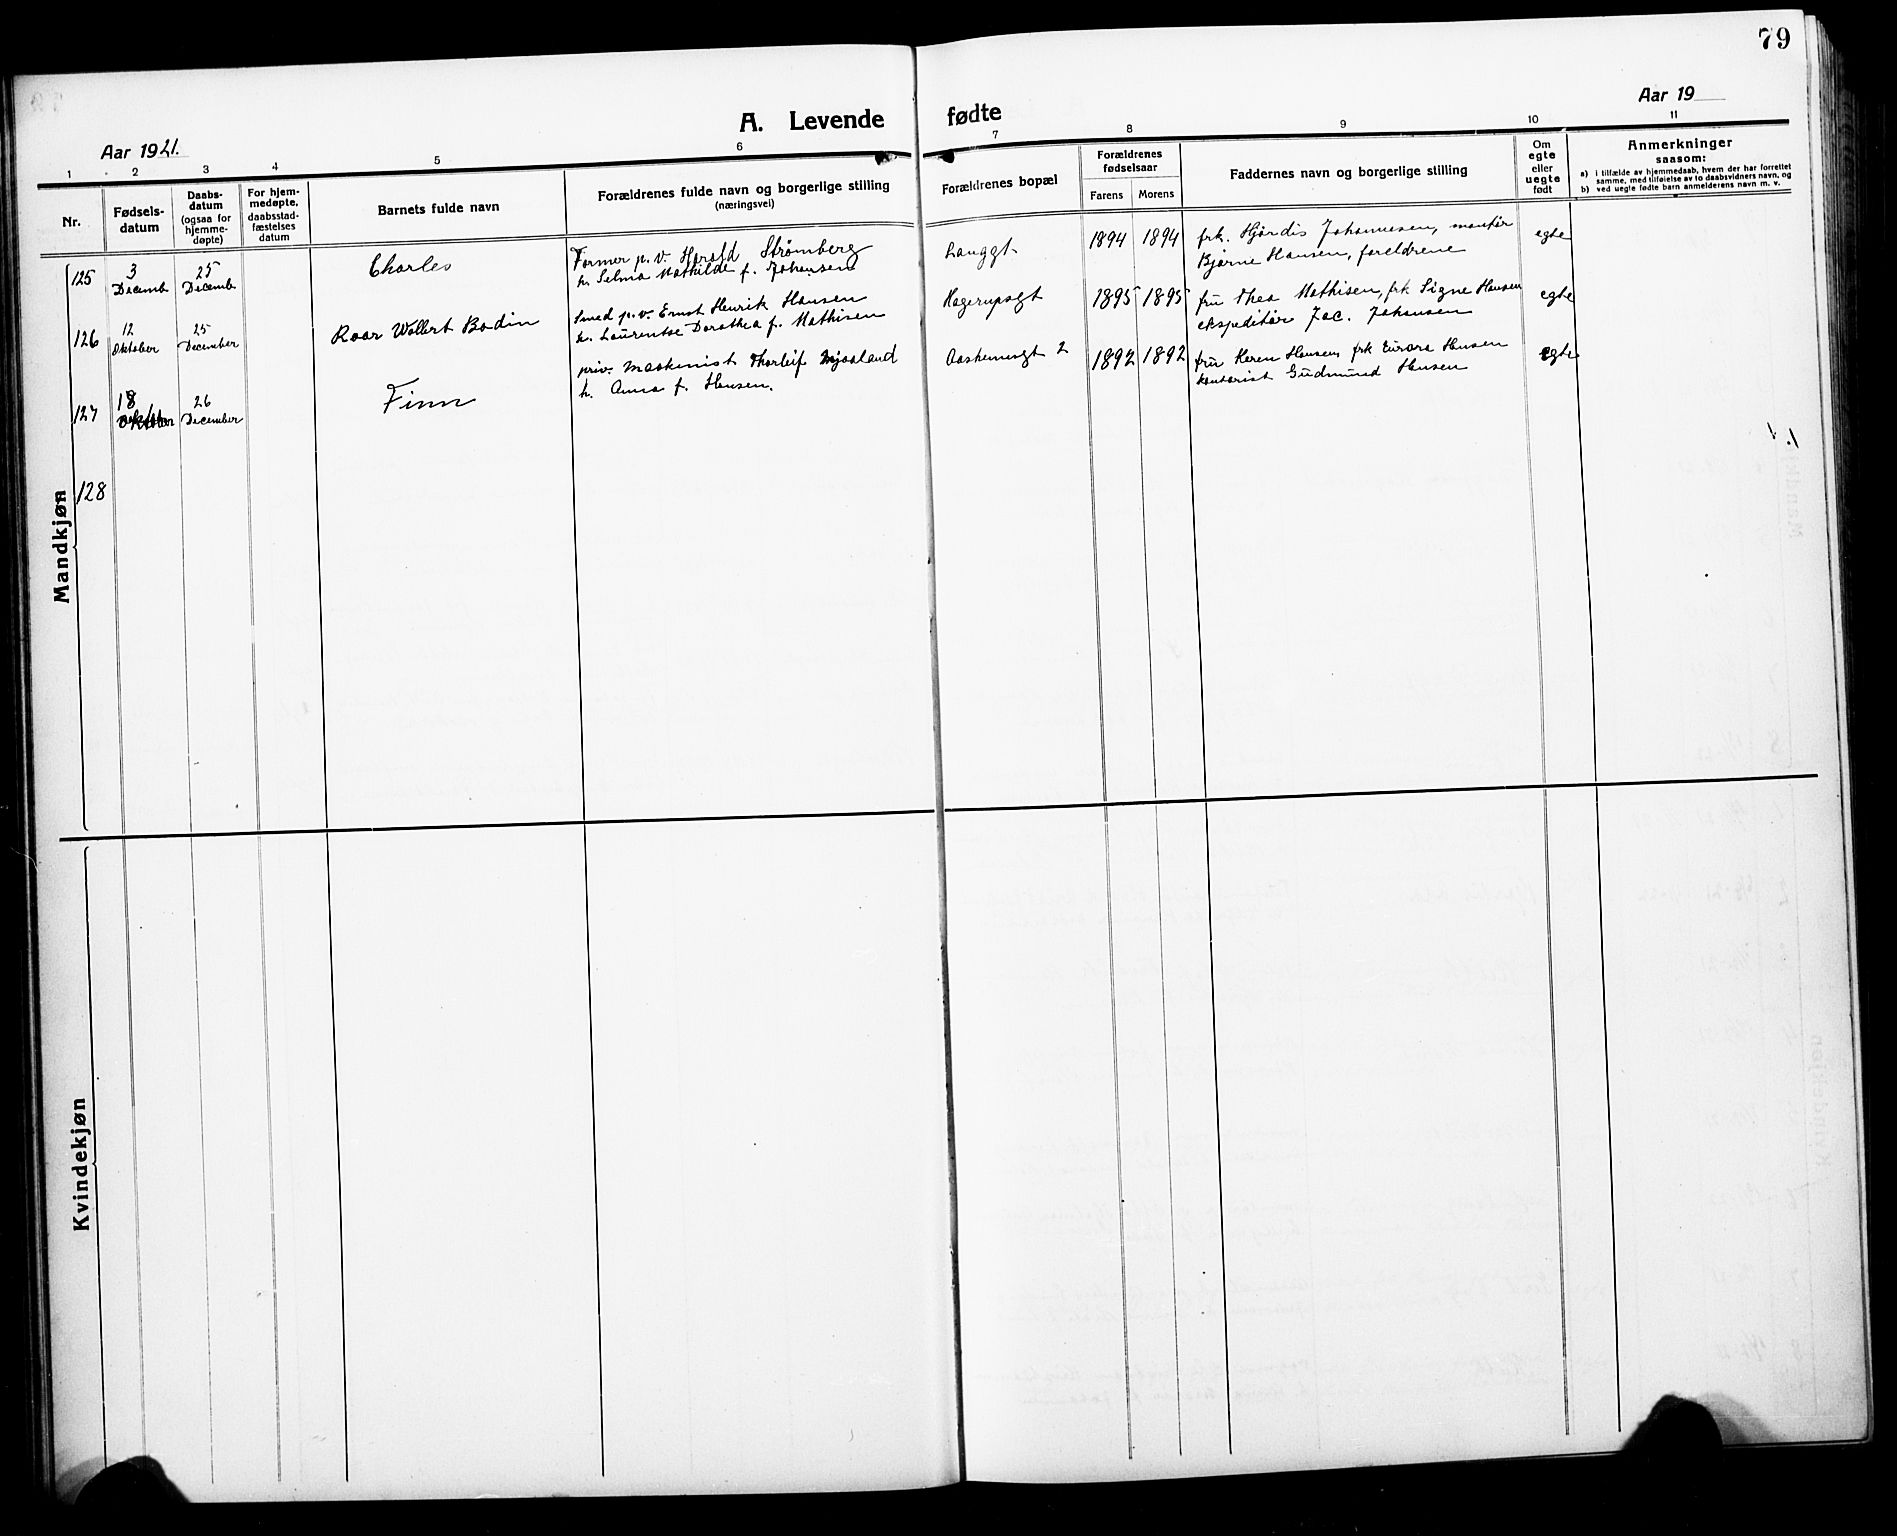 79
A. Levende fødte
Aar 1921.
Aar 19
1 2 3 4 5 6 7 8 9 10 11
Nr.
Fødsels-
datum
Daabs-
datum
(ogsaa for
hjemme-
døpte)
For hjem-
medøpte,
daabsstad-
fæstelses
datum
Barnets fulde navn
Forældrenes fulde navn og borgerlige stilling
(næringsvei)
Forældrenes bopæl
Forældrenes
fødselsaar
Farens Morens
Faddernes navn og borgerlige stilling
Om
egte
eller
uegte
født
Anmerkninger
saasom:
a) i tilfælde av hjemmedaab, hvem der har forrettet
samme, med tilføielse av to daabsvidners navn, og
b) ved uegte fødte barn anmelderens navn m. v.
Mandkjøn
125 3 Decemb 25 Decemb Charles
Former p. v. Harald Strømberg
h. Selma Mathilde f. Johansen
Langgt 1894 1894
frk. Hjørdis Johannesen, montør
Bjarne Hansen, foreldrene
egte
126 12 Oktober 25 December Roar Wollert Bodin
Smed p. v. Ernst Henrik Hansen
h. Laurentse Dorothea f. Mathisen
Hagerupsgt 1895 1895
fru Thea Mathisen, frk Signe Hansen
ekspeditør Jac. Johansen
egte
127 18 Oktober 26 December Finn
priv. maskinist Thorleif Mjaaland
h. Anna f. Hansen.
2 1892 1892
fru Karen Hansen, frk Hansen
kontorist Gudmund Hansen
egte
128
Kvindekjøn